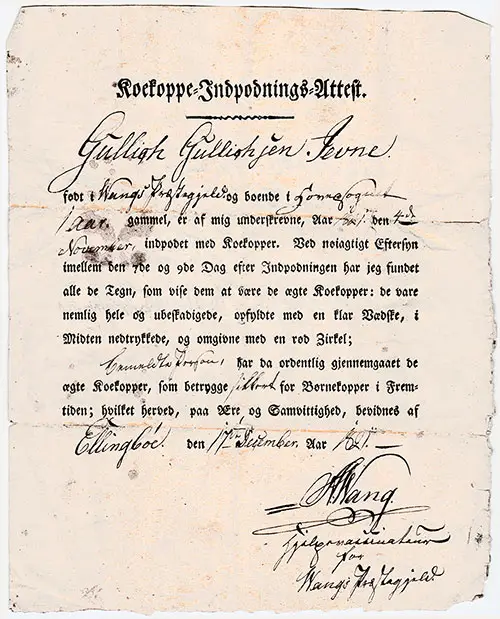 Koekoppe-Indpodnings-Attest.
Gulligh Gullighsen Jevne.
født i Wangs Præstegjeld og boende i Hovedsognet
1 Aar. gammel, er af mig underskrevne, Aar 1821. den 4de
November, indpodet med Koekopper. Ved nøiagtigt Eftersyn
imellem den 7de og 9de Dag efter Indpodningen har jeg fundet
alle de Tegn, som vise dem at være de ægte Koekopper: de vare
nemlig hele og ubeskadigede, opfyldte med en klar Vædske, i
Midten nedtrykkede, og omgivne med en rød Zirkel;
bemeldte Person, har da ordentlig gjennemgaaet de
ægte Koekopper, som betrygge sikkert for Børnekopper i Frem-
tiden; hvilket herved, paa Ære og Samvittighed, bevidnes af
Ellingbøe. den 17de December. Aar 1821.
Wang.
Hjelpevaccinateur
for
Wangs Præstegjeld